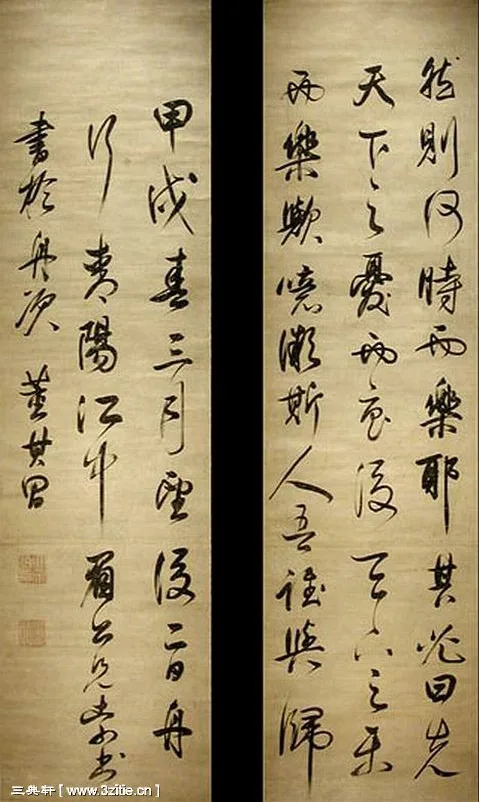 然則何時而樂耶其必曰先
天下之憂而憂後天下之樂
而樂歟噫微斯人吾誰與歸
甲戌春三月望後二日舟
行陽江中眉公兄書
書於舟次 董其昌
三典轩[www.3zitie.cn]